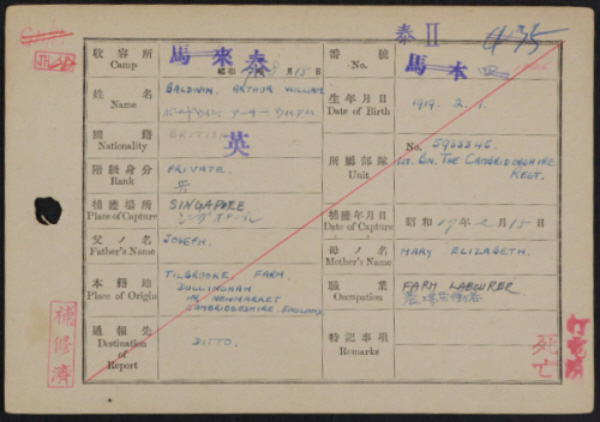 泰 II
収容所 Camp 馬來 泰
昭和 月 15 日
番號 No. 馬本 四
姓名 Name BALDWIN, ARTHUR WILLIAM
生年月日 Date of Birth 1919. 2. 1.
國籍 Nationality BRITISH 英
階級身分 Rank PRIVATE. 兵
所屬部隊 Unit No. 5933345.
1st. BN. THE CAMBRIDGESHIRE
REGT.
捕獲場所 Place of Capture SINGAPORE
シンガポール
捕獲年月日 Date of Capture 昭和 17 年 2 月 15 日
父ノ名 Father's Name JOSEPH.
母ノ名 Mother's Name MARY ELIZABETH.
本籍地 Place of Origin TILBROOKE FARM.
DULLINGHAM
NR NEWMARKET
CAMBRIDGESHIRE. ENGLAND
職業 Occupation FARM LABOURER
農場労働者
通報先 Destination of Report DITTO.
特記事項 Remarks
補修済
死亡